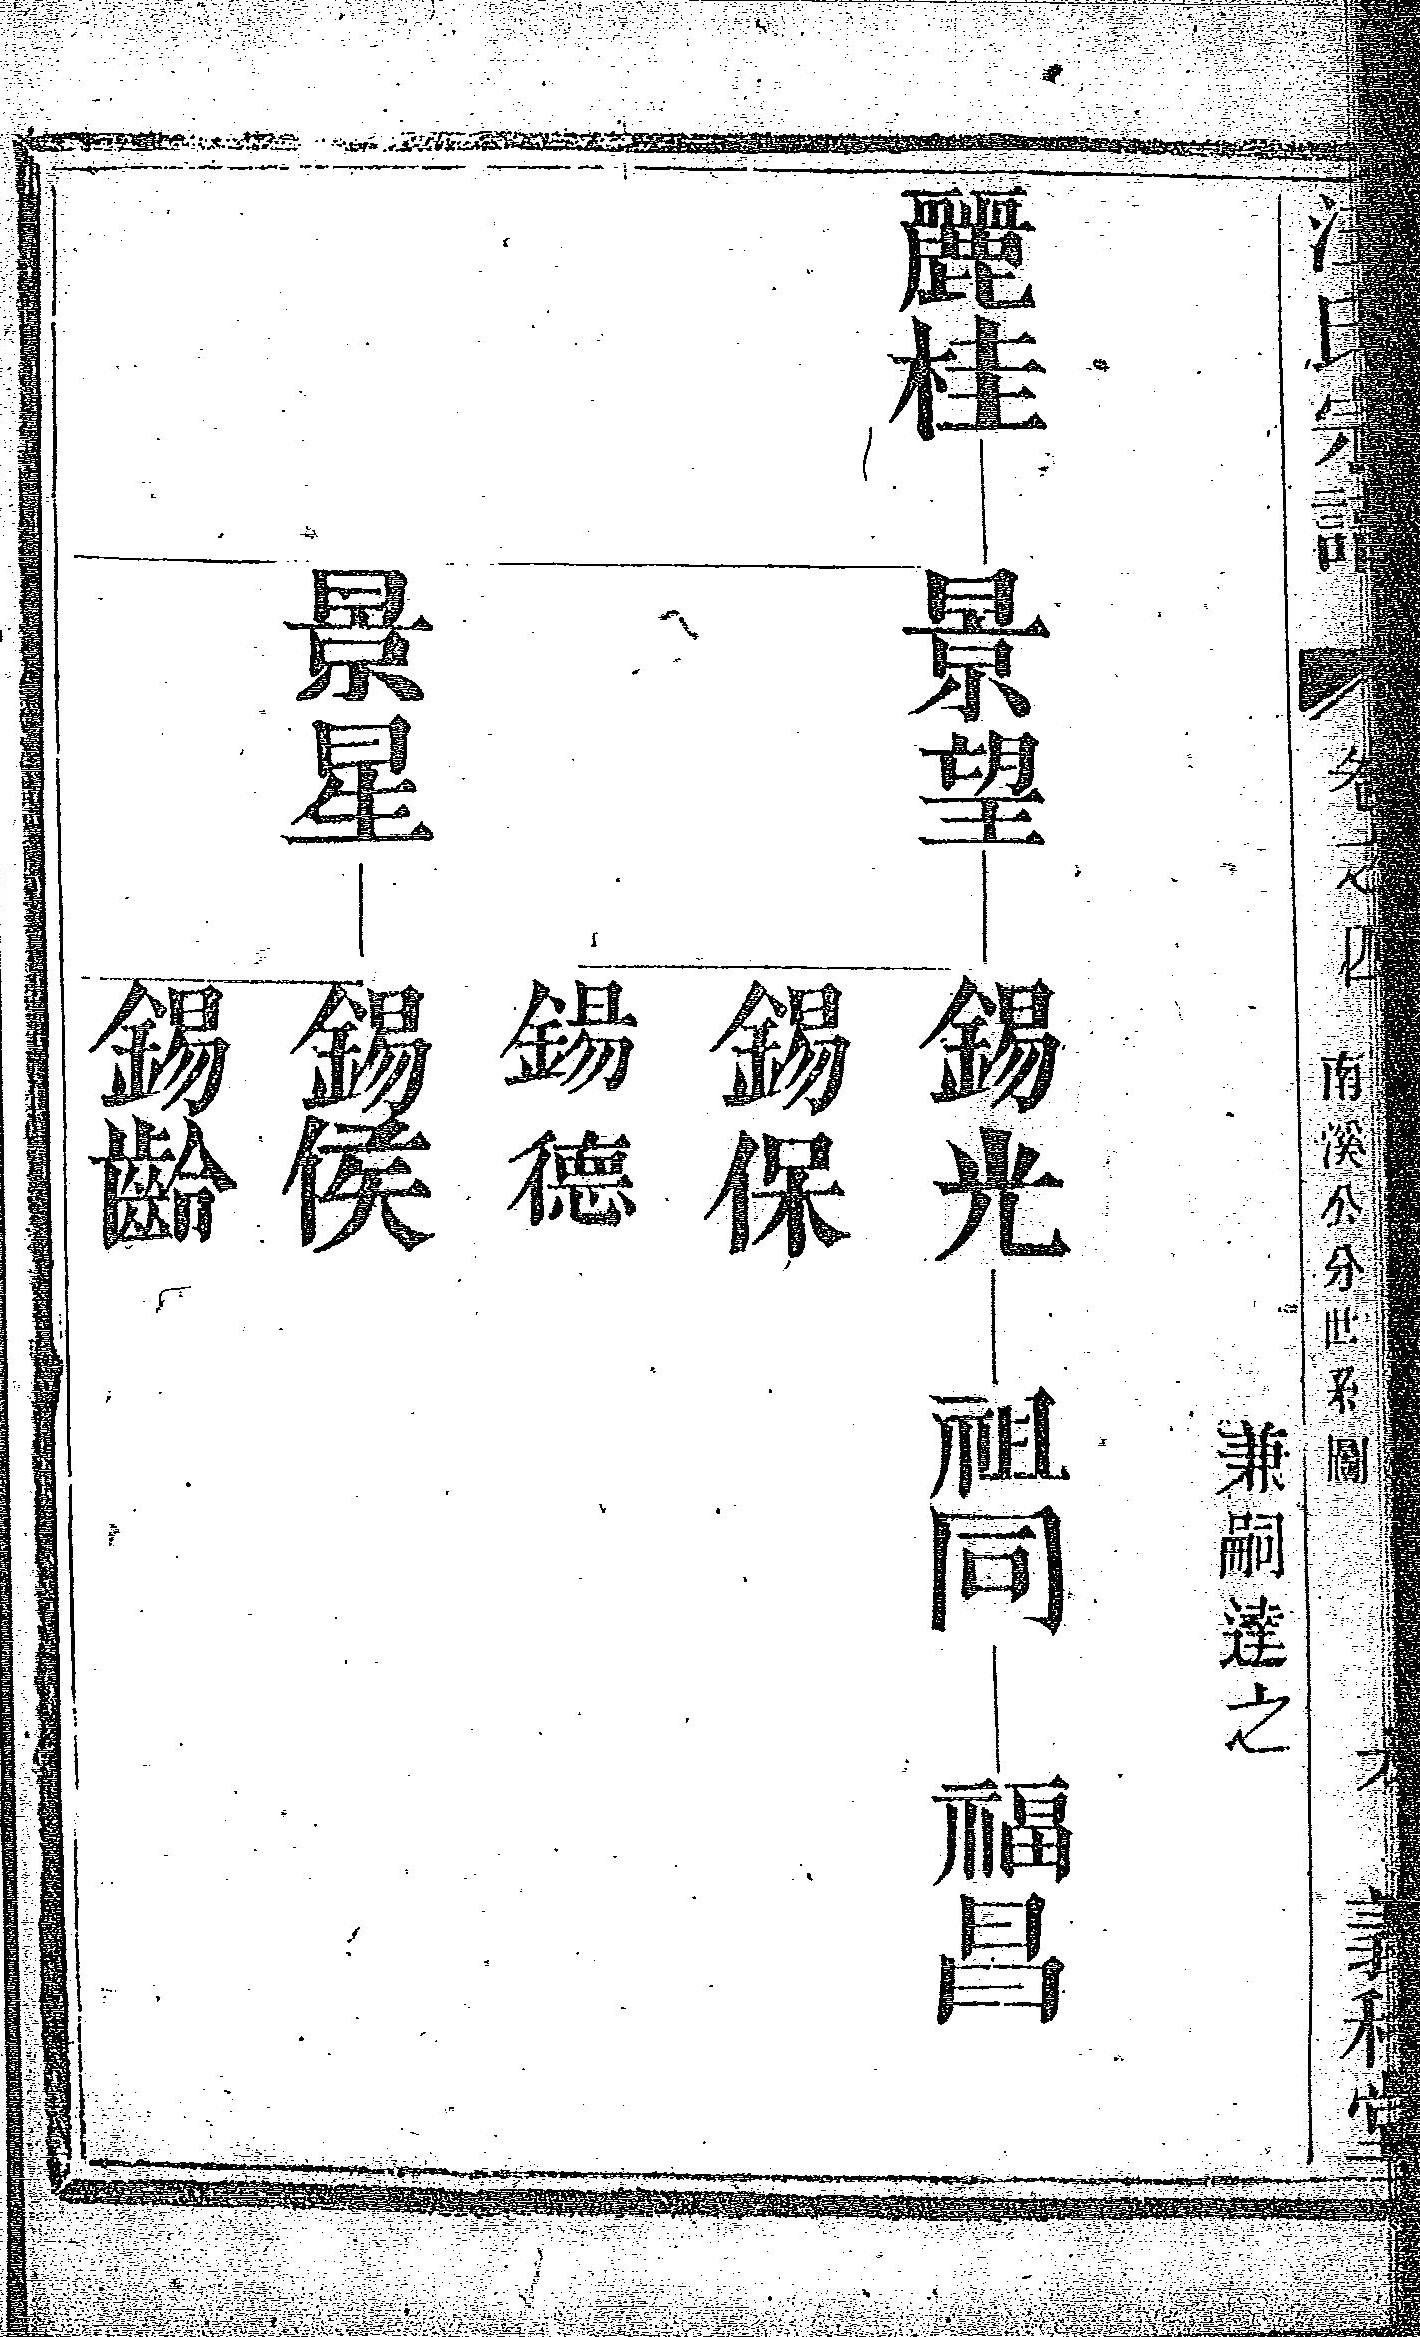 氏宗譜
卷之四
南溪公分世系圖
九
兼嗣達之
麗桂
景望
錫光
祖同
福昌
錫保
錫德
景星
錫侯
錫齡